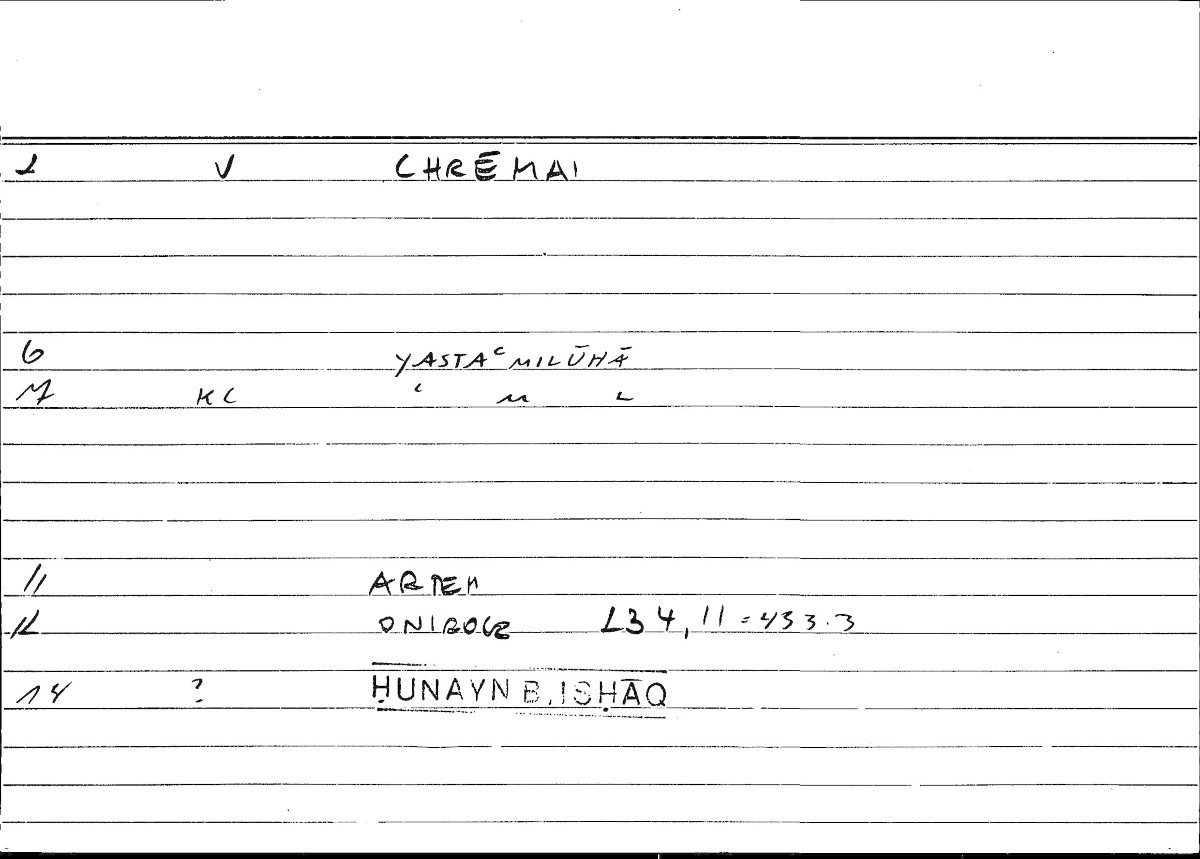 1 V CHRĒMAI
6 YASTAᶜMILŪHĀ
7 KC
11 ARTEM
12 ONIROCR 234,11=433.3
14 ? ḤUNAYN B. ISḤĀQ